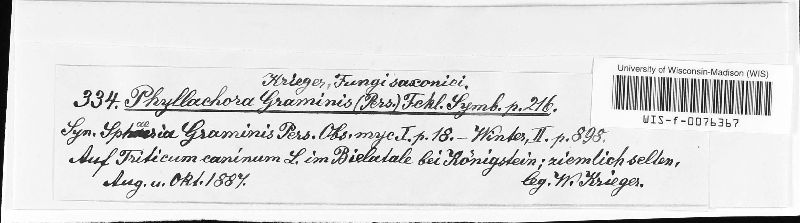 Krieger, Fungi saxonici.
334. Phyllachora Graminis (Pers.) Fckl. Symb. p. 216.
Syn. Sphaeria Graminis Pers. Obs. myc. I. p. 18. – Winter, II. p. 898.
Auf Triticum caninum L. im Bielatale bei Königstein; ziemlich selten,
Aug. u. Okt. 1887. leg. W. Krieger.
University of Wisconsin-Madison (WIS)
WIS-f-0076367